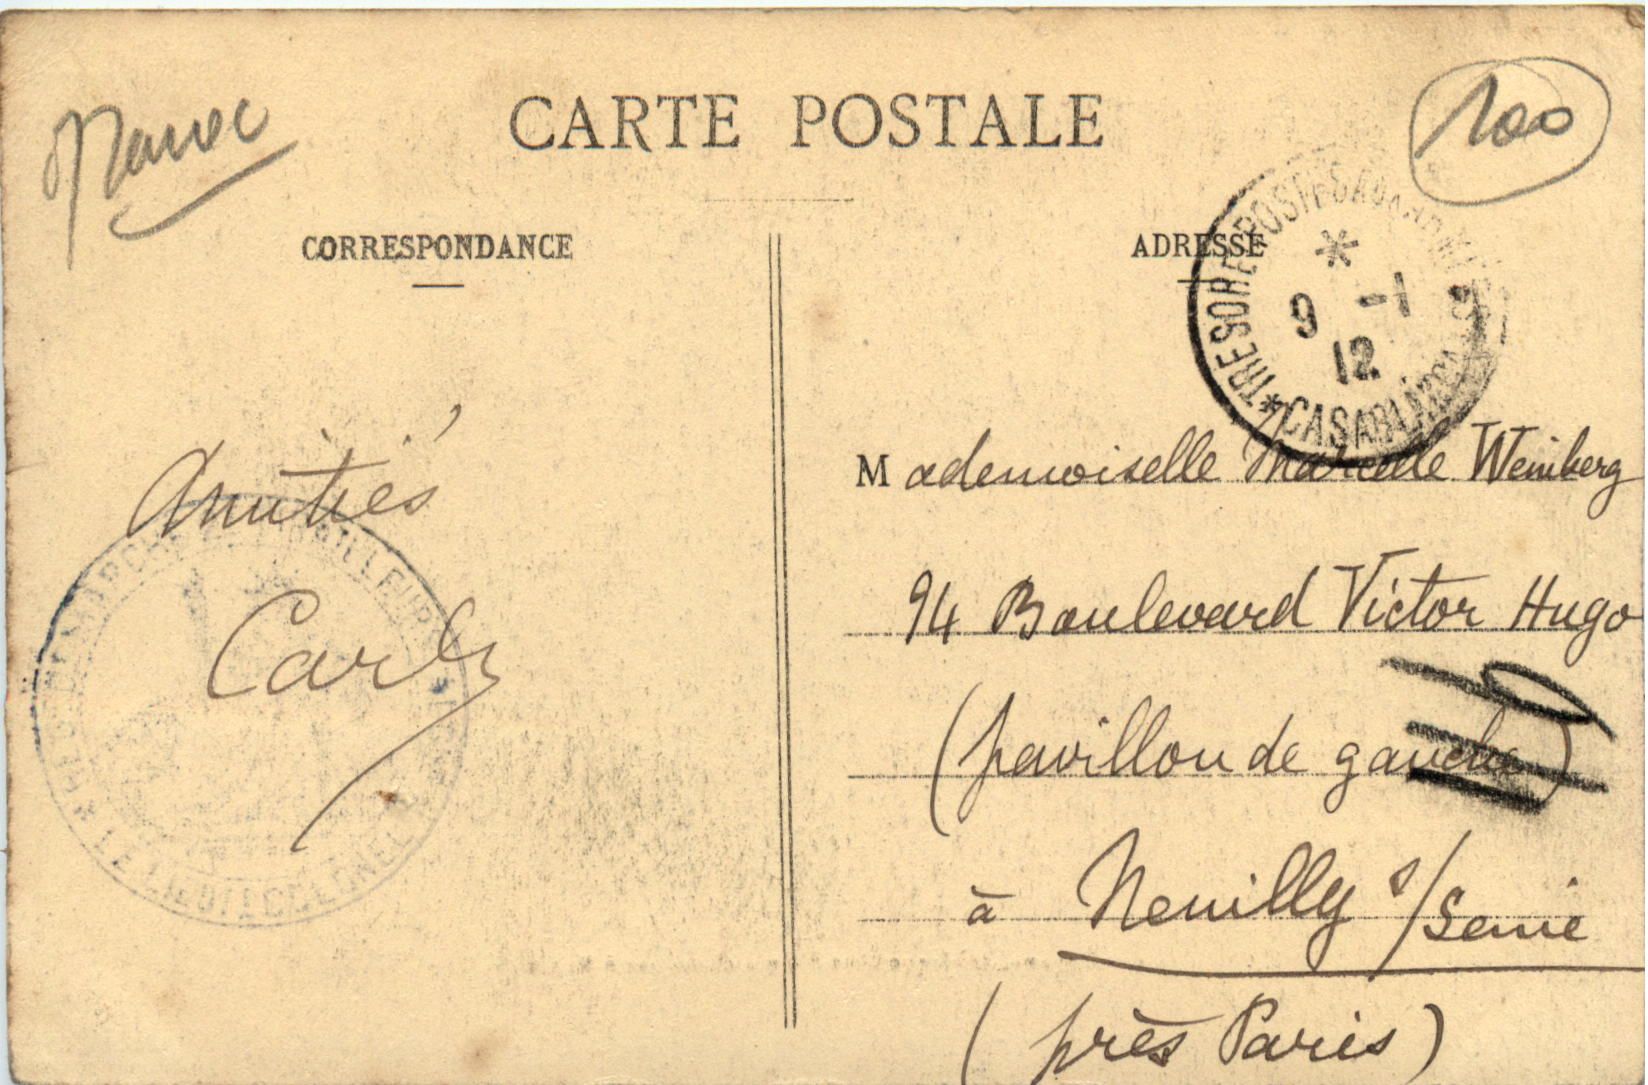 Maroc
CARTE POSTALE
100
CORRESPONDANCE
ADRESSE
* TRESOR ET POSTES AUX ARMEES
*
9 -1
12
CASABLANCA
Amitiés
M ademoiselle Marcelle Weinberg
94 Boulevard Victor Hugo
(pavillon de gauche)
à Neuilly s/Seine
(près Paris)
LE LIEUT COLONEL